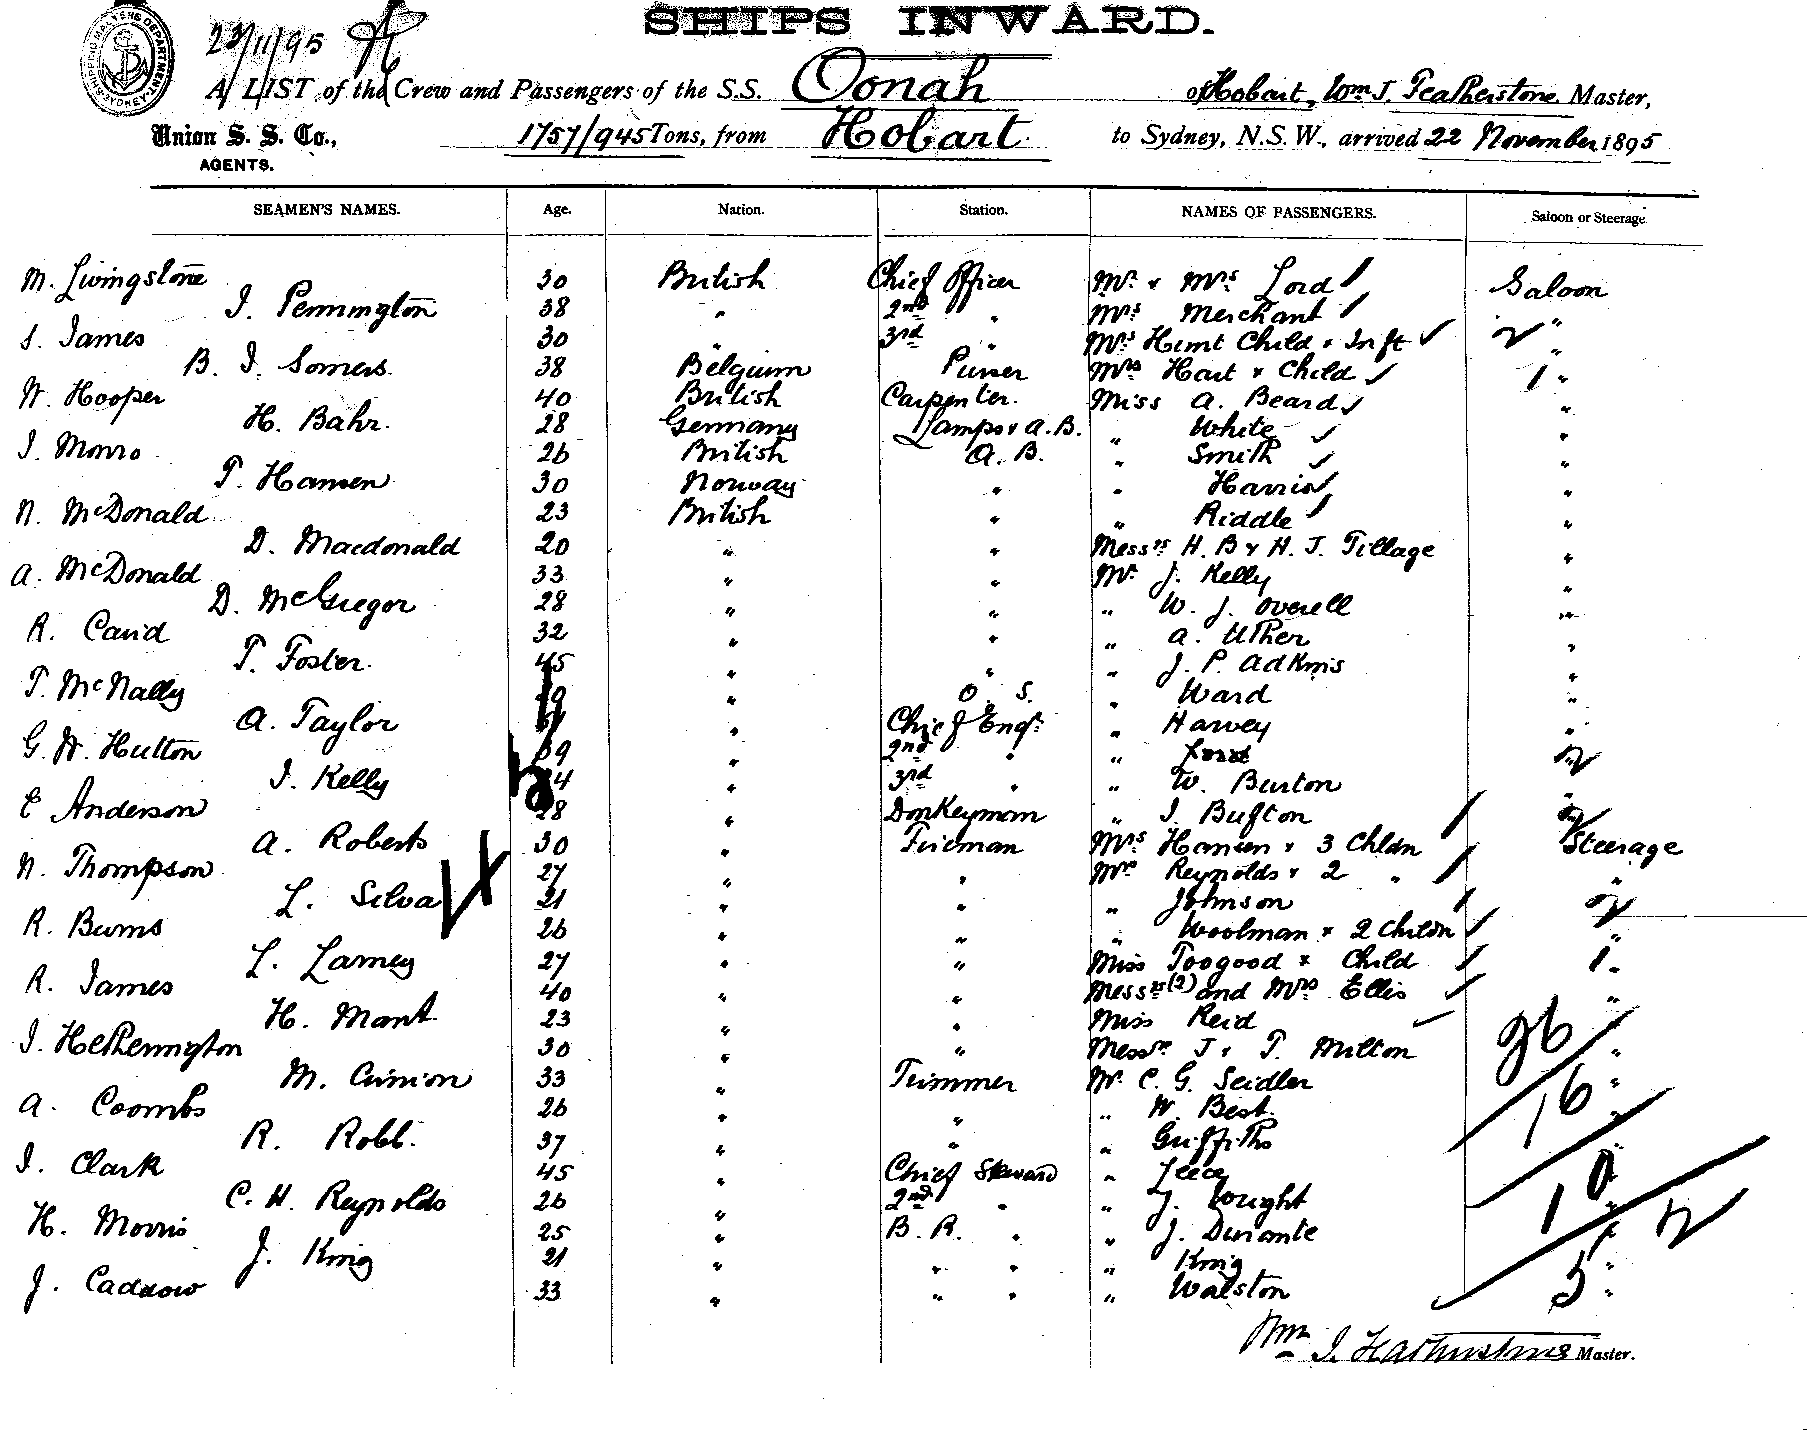 SHIPS INWARD.
23/11/95
A LIST of the Crew and Passengers of the S.S. Oonah of Hobart, Wm J. Featherstone Master,
Union S. S. Co., 1757/945 Tons, from Hobart. to Sydney, N.S.W., arrived 22 November 1895
AGENTS.
SEAMEN'S NAMES. Age. Nation. Station. NAMES OF PASSENGERS. Saloon or Steerage.
M. Livingstone 30 British Chief Officer Mr & Mrs Lord Saloon
J. Pennington 38 " 2nd " Mrs Merchant "
J. James 30 " 3rd " Mrs Hunt Child & Inft 2 "
B. J. Somers 38 Belgium Purser Mrs Hart & Child 1 "
W. Hooper 40 British Carpenter. Miss A. Beard "
H. Bahr. 28 Germany Lamps & A.B. " White "
J. Monro 26 British A. B. " Smith "
T. Hansen 30 Norway " " Harris "
N. McDonald 23 British " " Riddle "
D. Macdonald 20 " " Messrs H. B & H. J. Tillage "
A. McDonald 33 " " Mr J. Kelly "
D. McGregor 28 " " " W. J. Overell "
R. Caird 32 " " " A. Uther "
T. Foster. 45 " " " J. P. Adkins "
T. McNally 19 " O. S. " Ward "
A. Taylor " Chief Engr " Harvey "
G. W. Hutton 39 " 2nd " " Lord 2
J. Kelly " 3rd " " W. Burton "
E Anderson 28 " Donkeyman " J. Bufton 2
A. Roberts 30 " Fireman Mrs Hansen & 3 Chldn Steerage
N. Thompson 27 " " Mrs Reynolds & 2 " "
L. Silva 21 " " " Johnson 2
R. Burns 26 " " " Woolman & 2 Childn "
L. Lamey 27 " " Miss Toogood & Child 1 "
R. James 40 " " Messrs (2) and Mrs Ellis "
H. Mant 23 " " Miss Reid 26
J. Hetherington 30 " " Messrs J & T. Milton "
M. Cunion 33 " Trimmer Mr C. G. Seidler "
A. Coombs 26 " " " W. Best. 16 "
R. Robb. 37 " " " Griffiths "
J. Clark 45 " Chief Steward " Leecy "
C. H. Reynolds 26 " 2nd " " J. Wright 10 "
H. Morris 25 " B. R. " " J. Durante 2
J. King 21 " " " " King "
J. Caddow 33 " " " " Walston 5 "
Wm J. Featherstone Master.